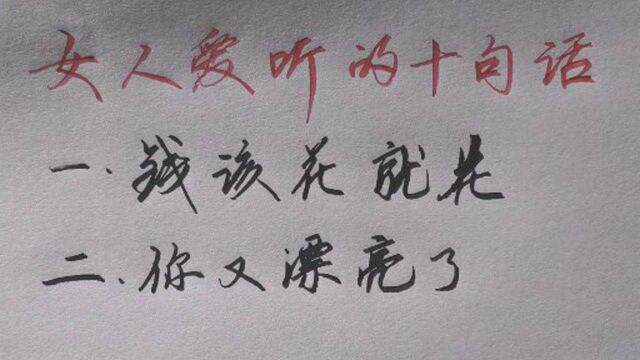 女人爱听的十句话
一.钱该花就花
二.你又漂亮了